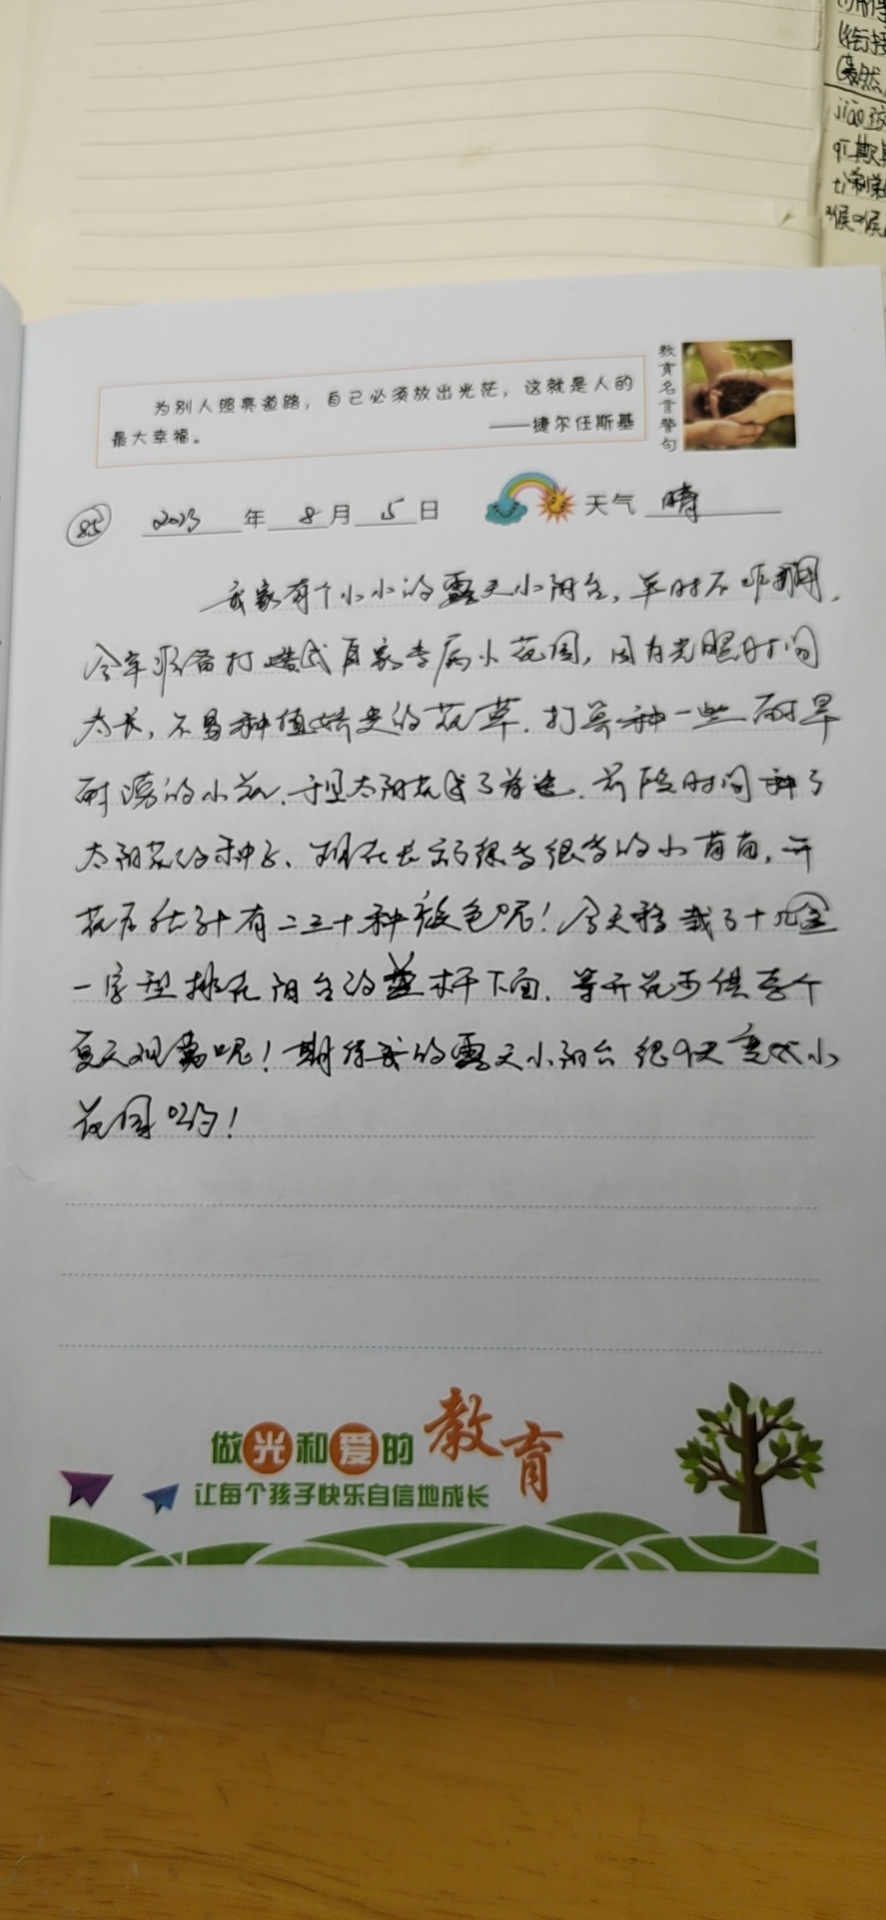 (衔接
jiāo
为别人照亮道路，自己必须放出光茫，这就是人的
最大幸福。
——捷尔任斯基
教育名言警句
85 2023年8月5日 天气 晴
我家有个小小的露天小阳台，平时不咋用，
今年准备打造成自家专属小花园，因为光照时间
太长，不易种植娇贵的花草，打算种一些耐旱
耐涝的小花，于是太阳花成了首选，前段时间种了
太阳花的种子，现在长出了很多很多的小苗苗，开
花后估计有二三十种颜色呢！今天移栽了十几盆
一字型排在阳台的栏杆下面，等开花可供整个
夏天观赏呢！期待我的露天小阳台很快变成小
花园哟！
做光和爱的教育
让每个孩子快乐自信地成长